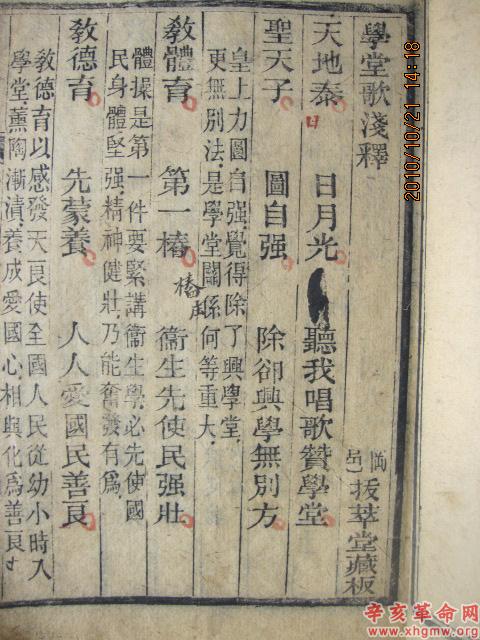 學堂歌淺釋
邑拔萃堂藏板
天地泰 日月光 聽我唱歌贊學堂
聖天子 圖自强 除卻興學無別方
皇上力圖自强覺得除了興學堂
更無別法是學堂關係何等重大
教體育 第一樁 衞生先使民强壯
樁
體操是第一件要緊講衞生學必先使國
民身體堅强精神健壯乃能奮發有爲
教德育 先蒙養 人人愛國民善良
教德育以感發天良使全國人民從幼小時入
學堂薰陶漸漬養成愛國心相與化爲善良
2010/10/21 14:18
辛亥革命网
www.xhgmw.org